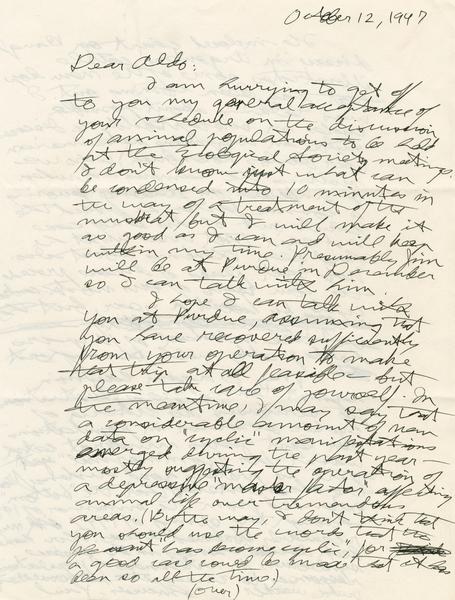 October 12, 1947
Dear Aldo:
I am hurrying to get off
to you my general acceptance of
your schedule on the discussion
of animal populations to be held
at the Ecological Society meetings.
I don't know just what can
be condensed into 10 minutes in
the way of a treatment of the
muskrat but I will make it
as good as I can and will keep
within my time. Presumably Jim
will be at Purdue in December
so I can talk with him.
I hope I can talk with
you at Purdue, assuming that
you have recovered sufficiently
from your operation to make
that trip at all feasible – but
please take care of yourself. In
the meantime, I may say that
a considerable amount of new
data on "cyclic" manifestations
emerged during the past year –
mostly supporting the operation of
a depressive "master factor" affecting
animal life over tremendous
areas. (By the way, I don't think that
you should use the words, that the
pheasant has become cyclic, for
a good case could be made that it has
been so all the time.)
(over)